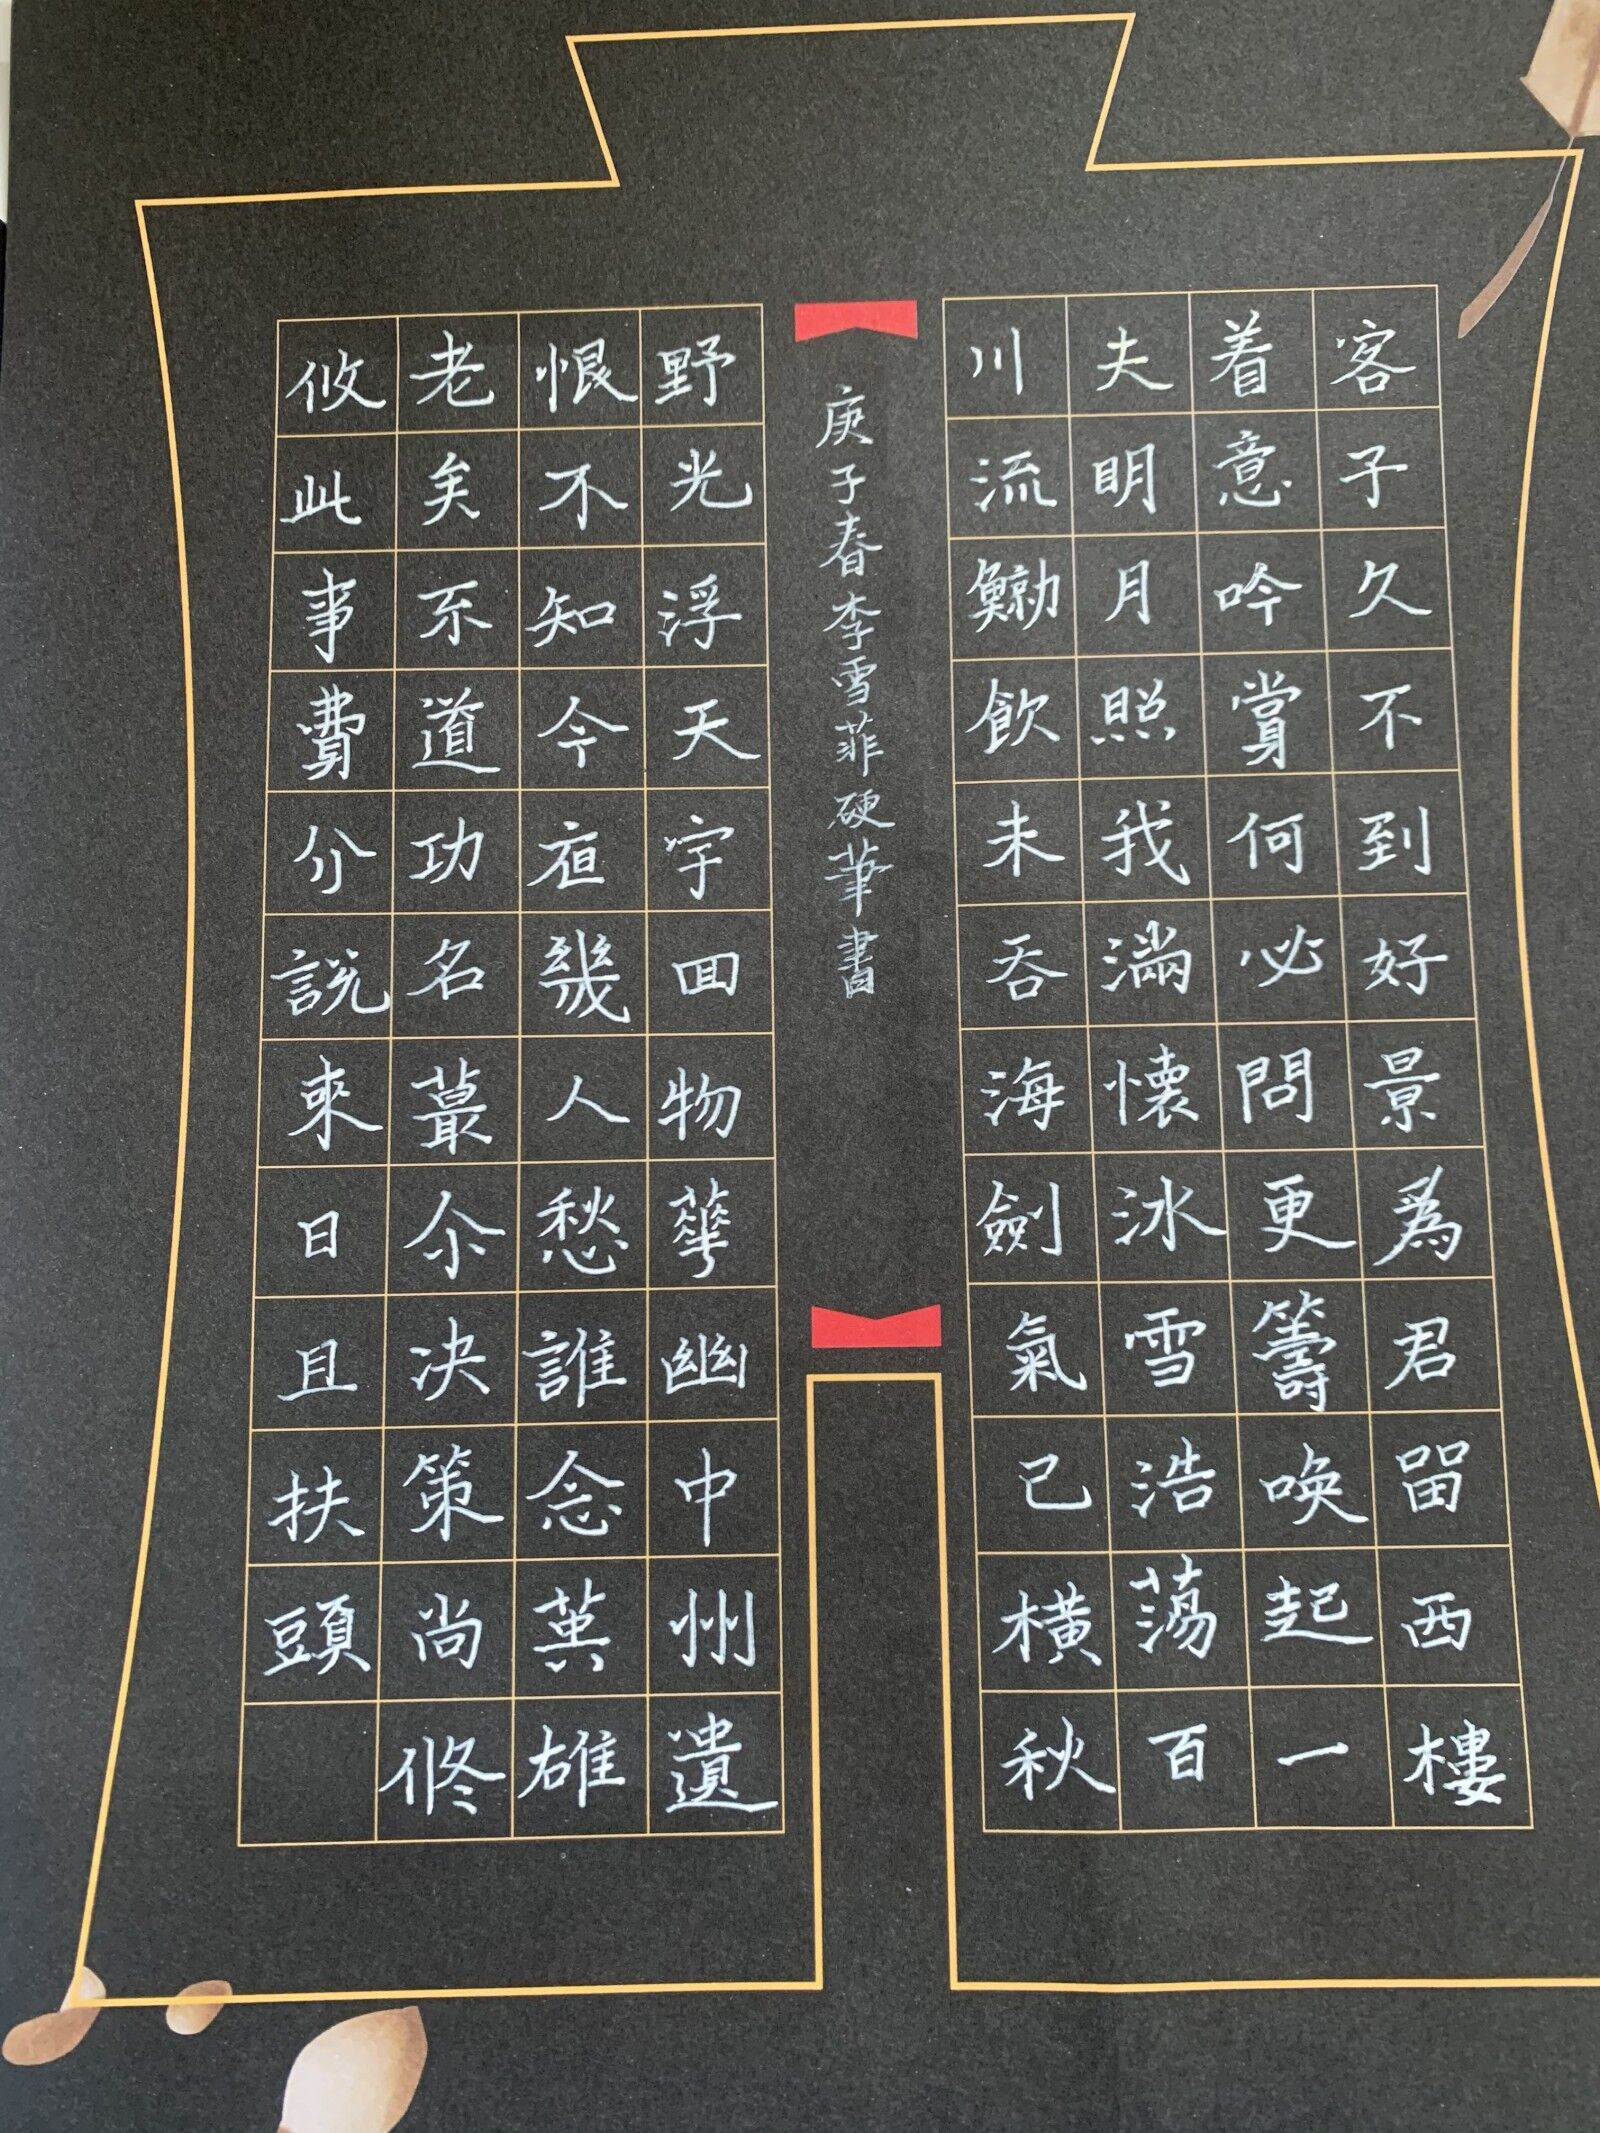 客子久不到好景爲君留西樓
着意吟賞何必問更籌喚起一
夫明月照我滿懷冰雪浩蕩百
川流鯨飲未吞海劍氣已橫秋
庚子春李雪菲硬筆書
野光浮天宇回物華幽中州遺
恨不知今夜幾人愁誰念英雄
老矣不道功名蕞尒決策尚
攸此事費分說來日且扶頭